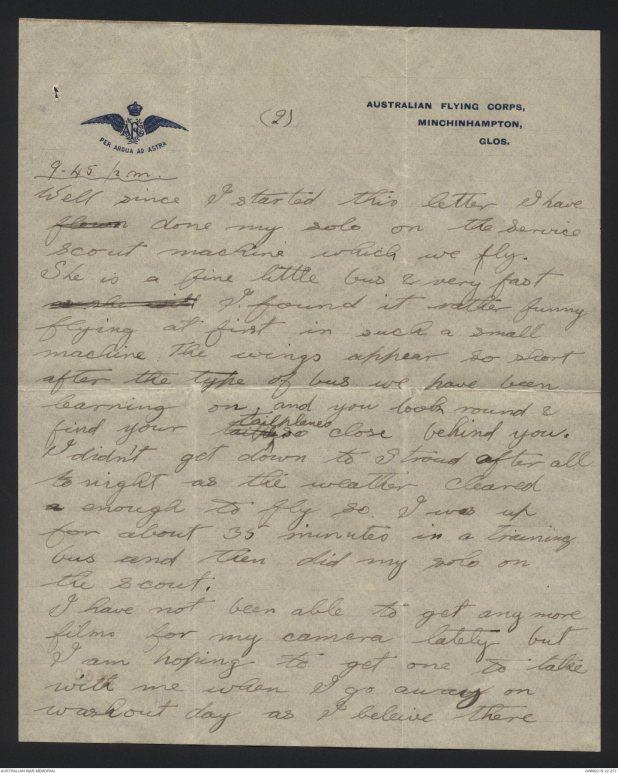 AUSTRALIAN FLYING CORPS,
MINCHINHAMPTON,
GLOS.
(2)
AFC
PER ARDUA AD ASTRA
9-45 p.m.
Well since I started this letter I have
flown done my solo on the service
scout machine which we fly.
She is a fine little bus & very fast
as she I found it rather funny
flying at first in such a small
machine. The wings appear so short
after the type of bus we have been
learning on, and you look round &
tailplanes
find your so close behind you.
I didn't get down to Stroud after all
to night as the weather cleared
enough to fly so I was up
for about 35 minutes in a training
bus and then did my solo on
the scout.
I have not been able to get any more
films for my camera lately but
I am hoping to get one to take
with me when I go away on
washout day as I beleive there
AUSTRALIAN WAR MEMORIAL